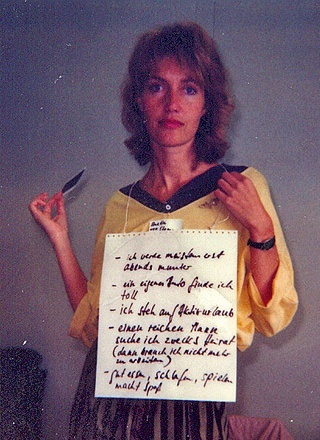 - ich werde meistens erst
abends munter
- ein eigenes Auto finde ich
toll
- ich steh auf Aktivurlaub
- einen reichen Mann
suche ich zwecks Heirat
(dann brauch ich nicht mehr
zu arbeiten)
- gut essen, schlafen, spielen
macht Spaß